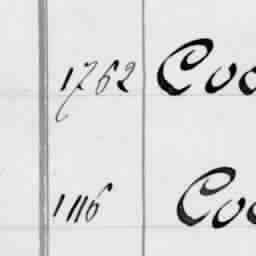 1762 Coo
1116 Coo